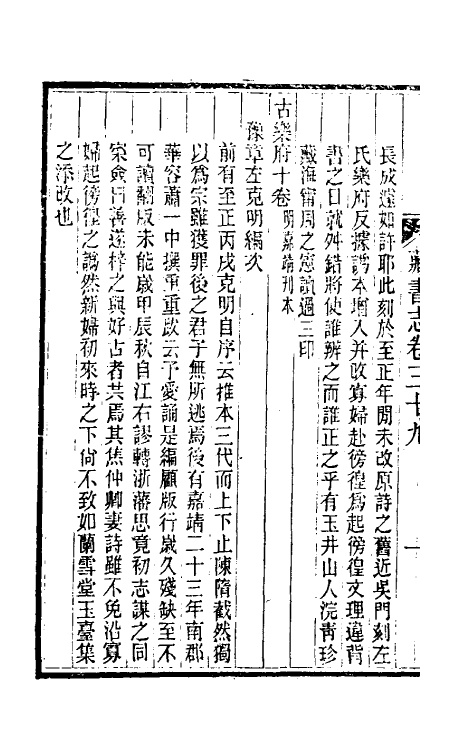 藏書志卷三十九
長成遠如許耶此刻於至正年閒未改原詩之舊近吳門刻左
氏樂府反據譌本增入并改寡婦赴徬徨爲起徬徨文理違背
書之日就舛結將使誰辨之而誰正之乎有玉井山人浣靑珍
藏海甯周之憲讀過三印
古樂府十卷 明嘉靖刊本
豫章左克明編次
前有至正丙戌克明自序云推本三代而上下止陳隋截然獨
以爲宗雖獲罪後之君子無所逃焉後有嘉靖二十三年南郡
華容蕭一中撰重啟云予愛誦是編顧版行歲久殘缺至不
可讀翻版未能歲甲辰秋自江右謬轉浙藩思竟初志謀之同
寀僉曰善遂梓之與好古者共焉其焦仲卿妻詩雖不免沿寡
婦起徬徨之譌然新婦初來時之下尙不致如蘭雪堂玉臺集
之添改也